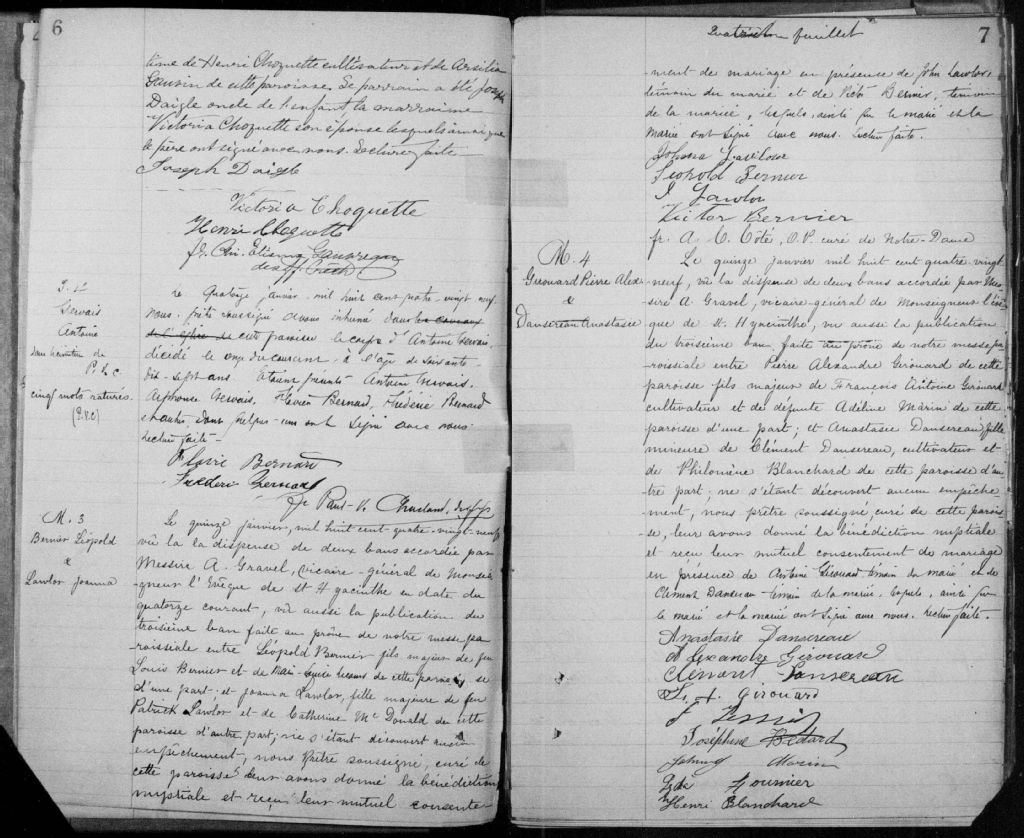 6
time de Henri Choquette cultivateur et de Arsilia
Gauvin de cette paroisse. Le parrain a été Joseph
Daigle oncle de l'enfant la marraine
Victoria Choquette son épouse lesquels ainsi que
le père ont signé avec nous. Lecture faite
Joseph Daigle
Victoria Choquette
Henri Choquette
fr. Etienne Gauvreau
des ff. Prêch
Gervais
Antoine
cinq mots raturés
(P.V.C)
Le quatorze janvier mil huit cent quatre-vingt neuf
nous prêtre soussigné avons inhumé dans les caveaux
de l'église de cette paroisse le corps d'Antoine Gervais
décédé le onze du courant à l'âge de soixante-
dix-sept ans Etaient présents Antoine Gervais
Alphonse Gervais, Flavien Bernard, Frédéric Bernard
et autres dont quelques-uns ont signé avec nous
Lecture faite
Flavie Bernard
Frédéric Bernard
fr Paul-V. Charland, des ff. p
M. 3
Bernier Léopold
&
Lawlor Joanna
Le quinze janvier, mil huit cent quatre-vingt-neuf
vû la la dispense de deux bans accordée par
Messire A. Gravel, vicaire-général de Monsei
gneur l'Evêque de St Hyacinthe en date du
quatorze courant, vû aussi la publication du
troisième ban faite au prône de notre messe pa
roissiale entre Léopold Bernier fils majeur de feu
Louis Bernier et de de cette paroisse
d'une part et Joanna Lawlor, fille majeure de feu
Patrick Lawlor et de Catherine Mc Donald de cette
paroisse d'autre part; ne s'étant découvert aucun
empêchement, nous Prêtre soussigné, curé de
cette paroisse leur avons donné la bénédiction
nuptiale et reçu leur mutuel consente
feuillet
7
ment de mariage en présence de John Lawlor,
témoin du marié et de Victor Bernier, témoin
de la mariée, lesquels, ainsi que le marié et la
mariée ont signé avec nous. Lecture faite.
Johana Lawlor
Léopold Bernier
J Lawlor
Victor Bernier
fr. A. C. Côté, O.P. curé de Notre-Dame
M. 4
Girouard Pierre Alex
&
Dansereau Anastasie
Le quinze janvier mil huit cent quatre vingt
neuf, vû la dispense de deux bans accordée par Mes
siré A. Gravel, vicaire-général de Monseigneur l'évê
que de St. Hyacinthe, vu aussi la publication
du troisième ban faite au prône de notre messe pa
roissiale entre Pierre Alexandre Girouard de cette
paroisse fils majeur de François Antoine Girouard
cultivateur et de défunte Adéline Marin de cette
paroisse d'une part; et Anastasie Dansereau, fille
mineure de Clément Dansereau, cultivateur et
de Philomène Blanchard de cette paroisse d'au
tre part; ne s'étant découvert aucun empêche
ment, nous prêtre soussigné curé de cette parois
se, leur avons donné la bénédiction nuptiale
et reçu leur mutuel consentement de mariage
en présence de Antoine Girouard témoin du marié et de
Clément Dansereau témoin de la mariée, lesquels, ainsi que
le marié et la mariée ont signé avec nous. Lecture faite.
Anastasie Dansereau
Alexandre Girouard
Clément Dansereau
A. Girouard
Joséphine Bédard
Johnny Morin
Fournier
Henri Blanchard